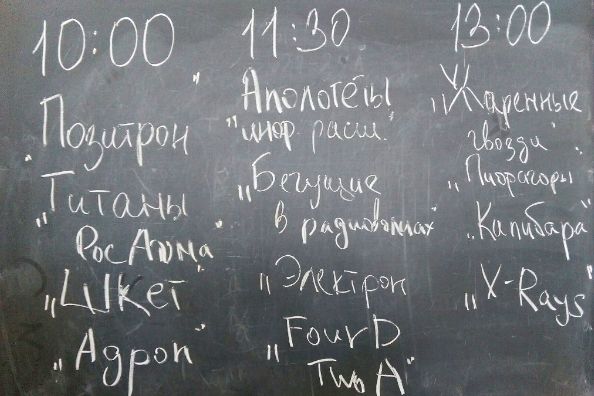 10:00
„Позитрон"
„Титаны
РосАтма"
„ШКет"
„Адрон"
11:30
„Апологеты
"инор. расш."
„Бегущие
в радиоволнах"
„Электрон
„FourD
Two A"
13:00
„Жаренные
гвозди"
„Пифагоры
„Капибара"
„X-Rays"